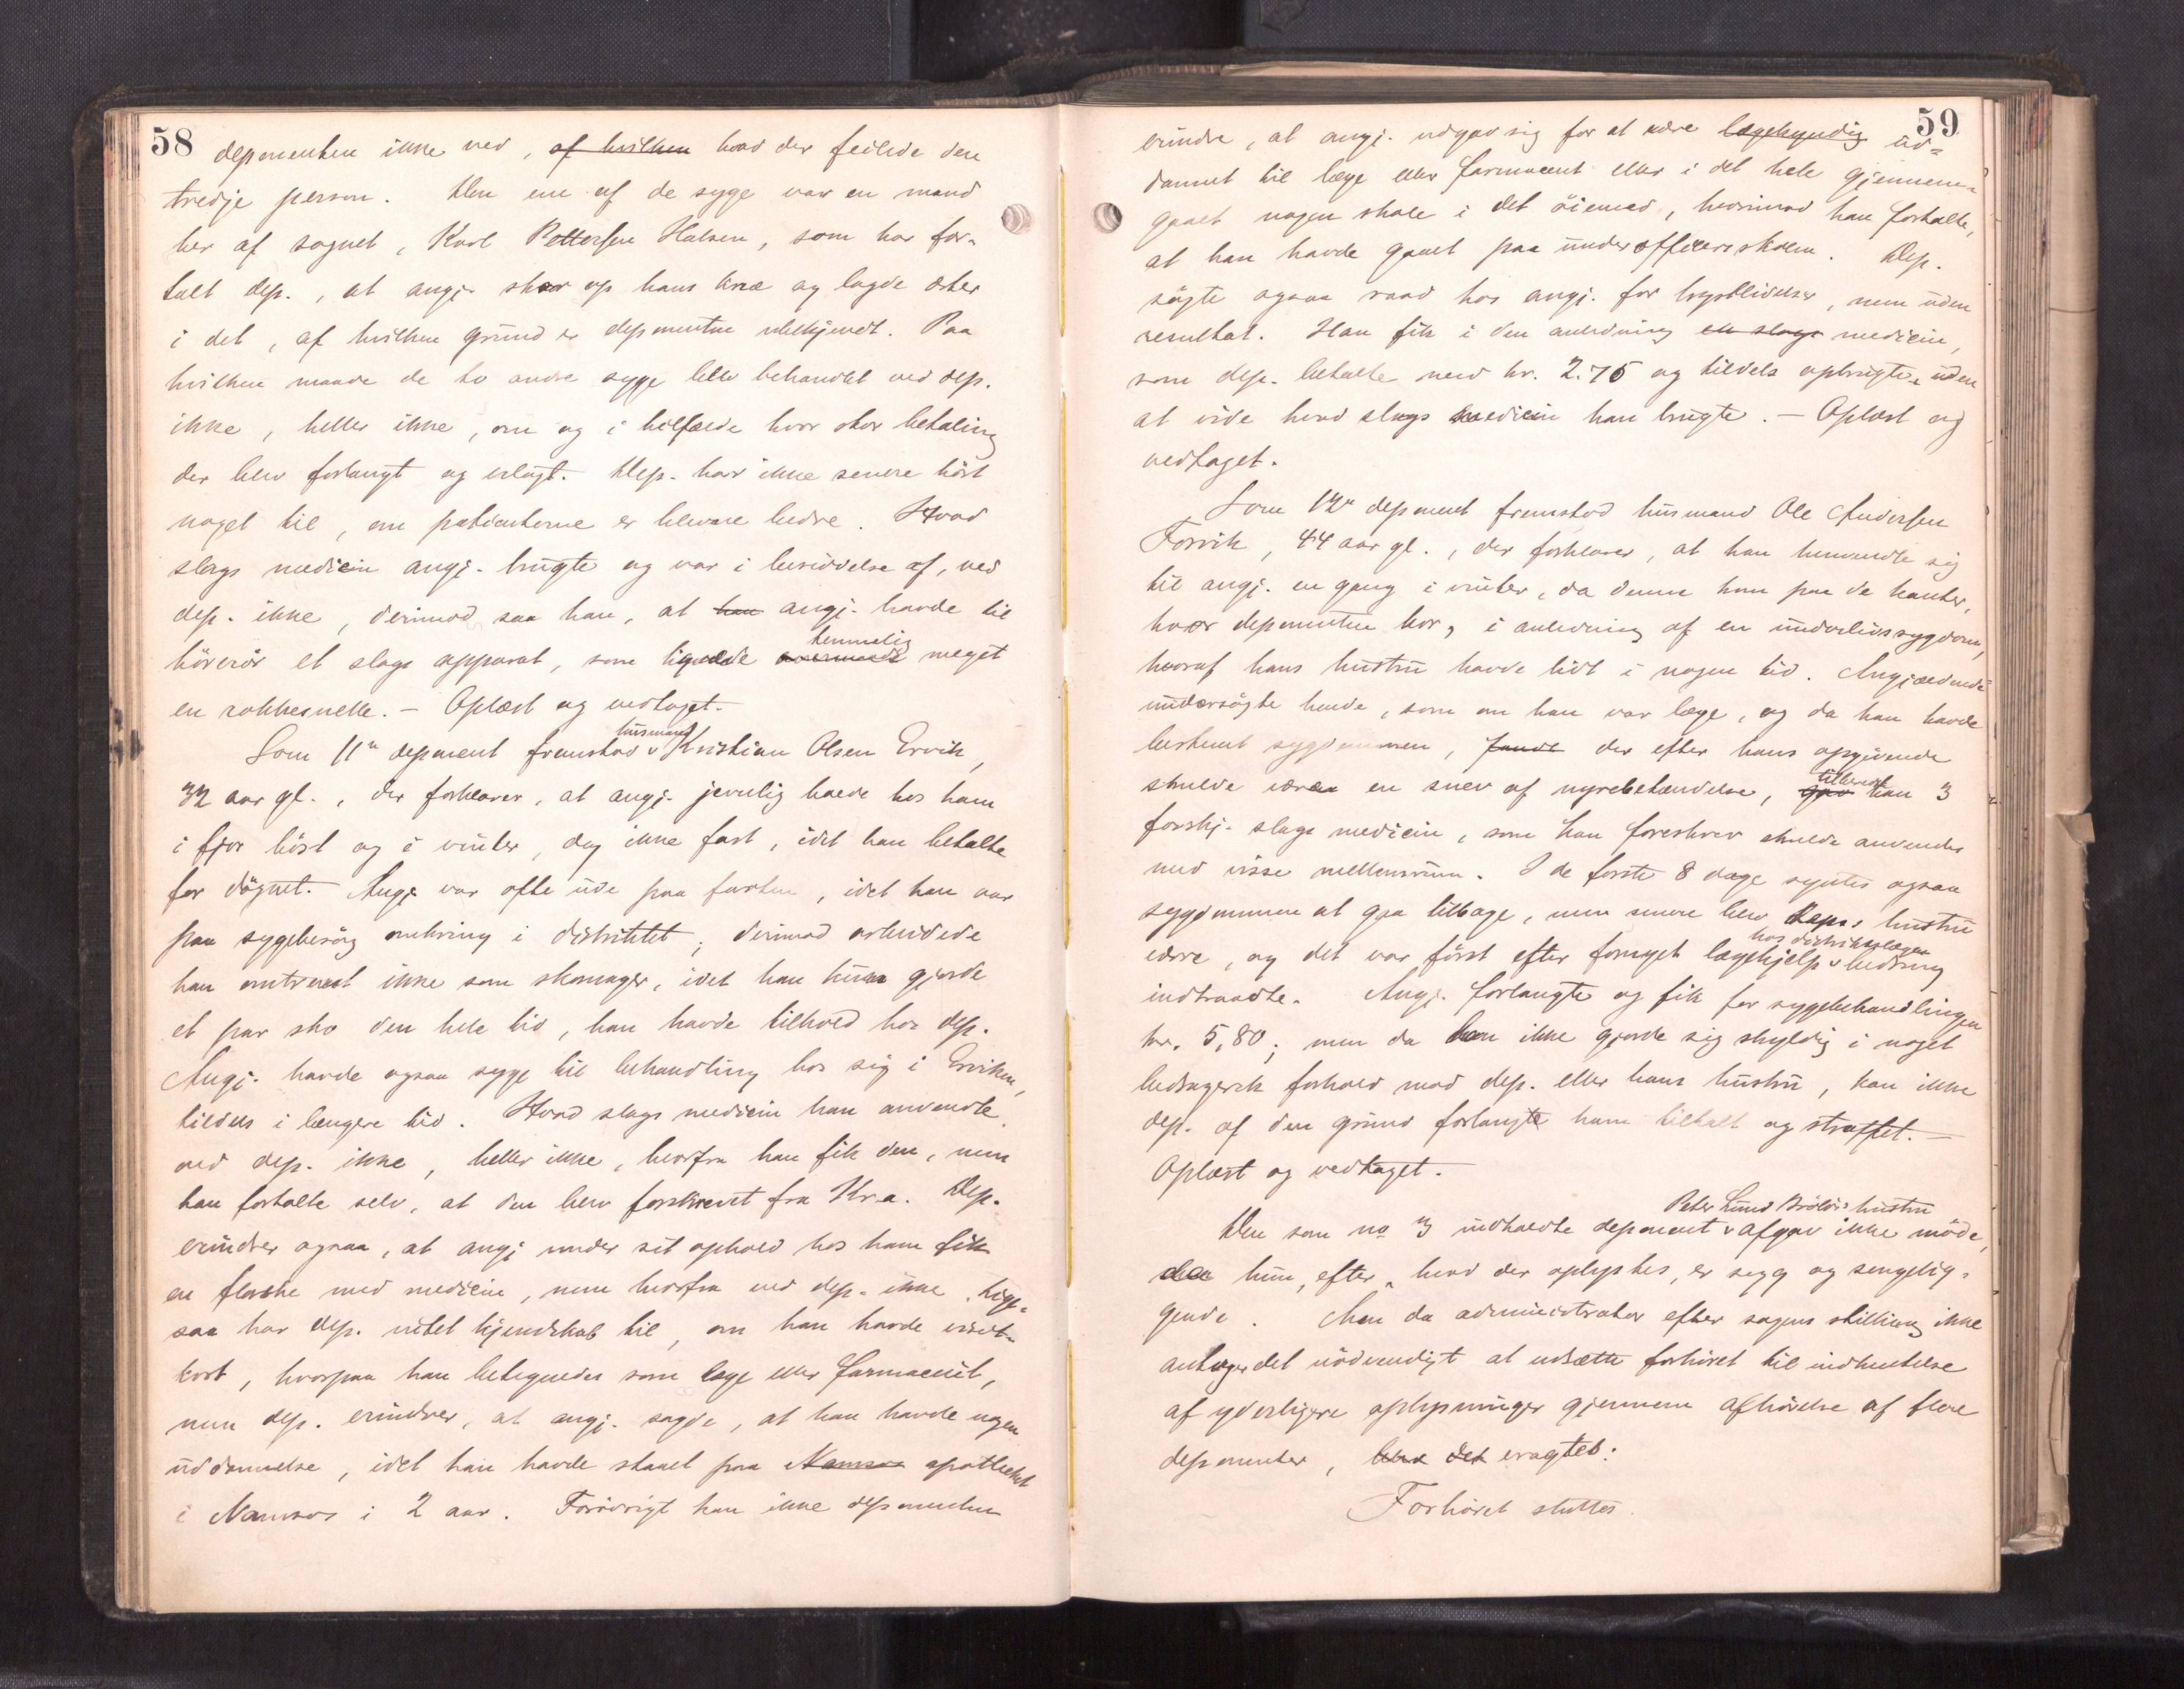 58
deponenten ikke ved, af hvilken hvad der feilede den
tredje person. Den ene af de syge var en mand
her af sognet, Karl Pettersen Halsen, som har for-
talt dep., at angj. skar op hans knæ og lagde æter
i det, af hvilken grund er deponenten ubekjendt. Paa
hvilken maade de to andre syge blev behandlet ved dep.
ikke, heller ikke, om og i tilfælde hvor stor betaling
der blev forlangt og erlagt. Dep. har ikke senere hört
noget til, om patienterne er blevne bedre. Hvad
slags medicin angj. brugte og var i besiddelse af, ved
dep. ikke, derimod saa han, at han angj. havde til
hörerör et slags apparat, som lignede temmelig meget
en rokkesnelle. – Oplæst og vedtaget.
Som 11te deponent fremstod husmand Kristian Olsen Ervik,
32 aar gl., der forklarer, at angj. jevnlig boede hos ham
i fjor höst og i vinter, dog ikke fast, idet han betalte
for dögnet. Angj. var ofte ude paa farten, idet han var
paa sygebesög omkring i distriktet; derimod arbeidede
han omtrent ikke som skomager, idet han kun gjorde
et par sko den hele tid, han havde tilhold hos dep.
Angj. havde ogsaa syge til behandling hos sig i Erviken,
tildels i længere tid. Hvad slags medicin han anvendte
ved dep. ikke, heller ikke, hvorfra han fik den, men
han fortalte selv, at den blev forskrevet fra Kr.a. Dep.
erindrer ogsaa, at angj. under sit ophold hos ham fik
en flaske med medicin, men hvorfra ved dep. ikke. Lige-
saa har dep. intet kjendskab til, om han havde visit-
kort, hvorpaa han betegnedes som læge eller farmaceut,
men dep. erindrer, at angj. sagde, at han havde nogen
uddannelse, idet han havde staaet paa Namsos apotheket
i Namsos i 2 aar. Forövrigt kan ikke deponenten
59
erindre, at angj. udgav sig for at være lægekyndig ud-
dannet til læge eller farmaceut eller i det hele gjennem-
gaaet nogen skole i det öiemed, hvorimod han fortalte,
at han havde gaaet paa underofficersskolen. Dep.
sögte ogsaa raad hos angj. for brystlidelse, men uden
resultat. Han fik i den anledning en slags medicin,
som dep. betalte med kr. 2.75 og tildels opbrugte, uden
at vide hvad slags medicin han brugte. – Oplæst og
vedtaget.
Som 12te deponent fremstod husmand Ole Andersen
Forvik, 44 aar gl., der forklarer, at han henvendte sig
til angj. en gang i vinter, da denne kom paa de kanter,
hvor deponenten bor, i anledning af en underlivssygdom,
hvoraf hans hustru havde lidt i nogen tid. Angjældende
undersögte hende, som om han var læge, og da han havde
bestemt sygdommen, fandt der efter hans opgivende
skulde være en snev af nyrebetændelse, gav tillavet han 3
forskj. slags medicin, som han foreskrev skulde anvendes
med visse mellemrum. I de förste 8 dage syntes ogsaa
sygdommen at gaa tilbage, men senere blev dep.s hustru
værre, og det var först efter fornyet lægehjelp hos distriktslægen bedring
indtraadte. Angj. forlangte og fik for sygebehandlingen
kr. 5,80; men da han ikke gjorde sig skyldig i noget
bedragersk forhold mod dep. eller hans hustru, kan ikke
dep. af den grund forlangte ham tiltalt og straffet. –
Oplæst og vedtaget.
Den som no 3 indkaldte deponent Peter Lund Brölös hustru afgav ikke möde,
da hun, efter hvad der oplystes, er syg og sengelig-
gende. Men da administrator efter sagens stilling ikke
antager det nödvendigt at udsætte forhöret til indhentelse
af yderligere oplysninger gjennem afhörelse af flere
deponenter, blev det eragtet:
Forhöret sluttes.